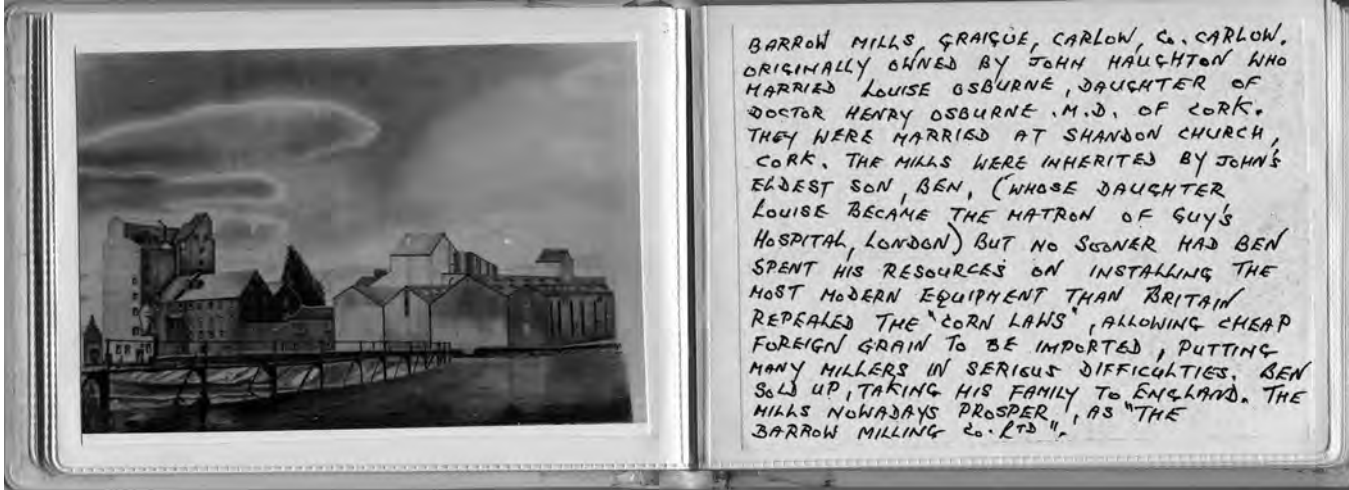 BARROW MILLS, GRAIGUE, CARLOW, Co. CARLOW.
ORIGINALLY OWNED BY JOHN HAUGHTON WHO
MARRIED LOUISE OSBURNE, DAUGHTER OF
DOCTOR HENRY OSBURNE. M.D. OF CORK.
THEY WERE MARRIED AT SHANDON CHURCH,
CORK. THE MILLS WERE INHERITED BY JOHN'S
ELDEST SON, BEN, (WHOSE DAUGHTER
LOUISE BECAME THE MATRON OF GUY'S
HOSPITAL, LONDON) BUT NO SOONER HAD BEN
SPENT HIS RESOURCES ON INSTALLING THE
MOST MODERN EQUIPMENT THAN BRITAIN
REPEALED THE "CORN LAWS", ALLOWING CHEAP
FOREIGN GRAIN TO BE IMPORTED, PUTTING
MANY MILLERS IN SERIOUS DIFFICULTIES. BEN
SOLD UP, TAKING HIS FAMILY TO ENGLAND. THE
MILLS NOWADAYS PROSPER, AS "THE
BARROW MILLING Co. LTD".